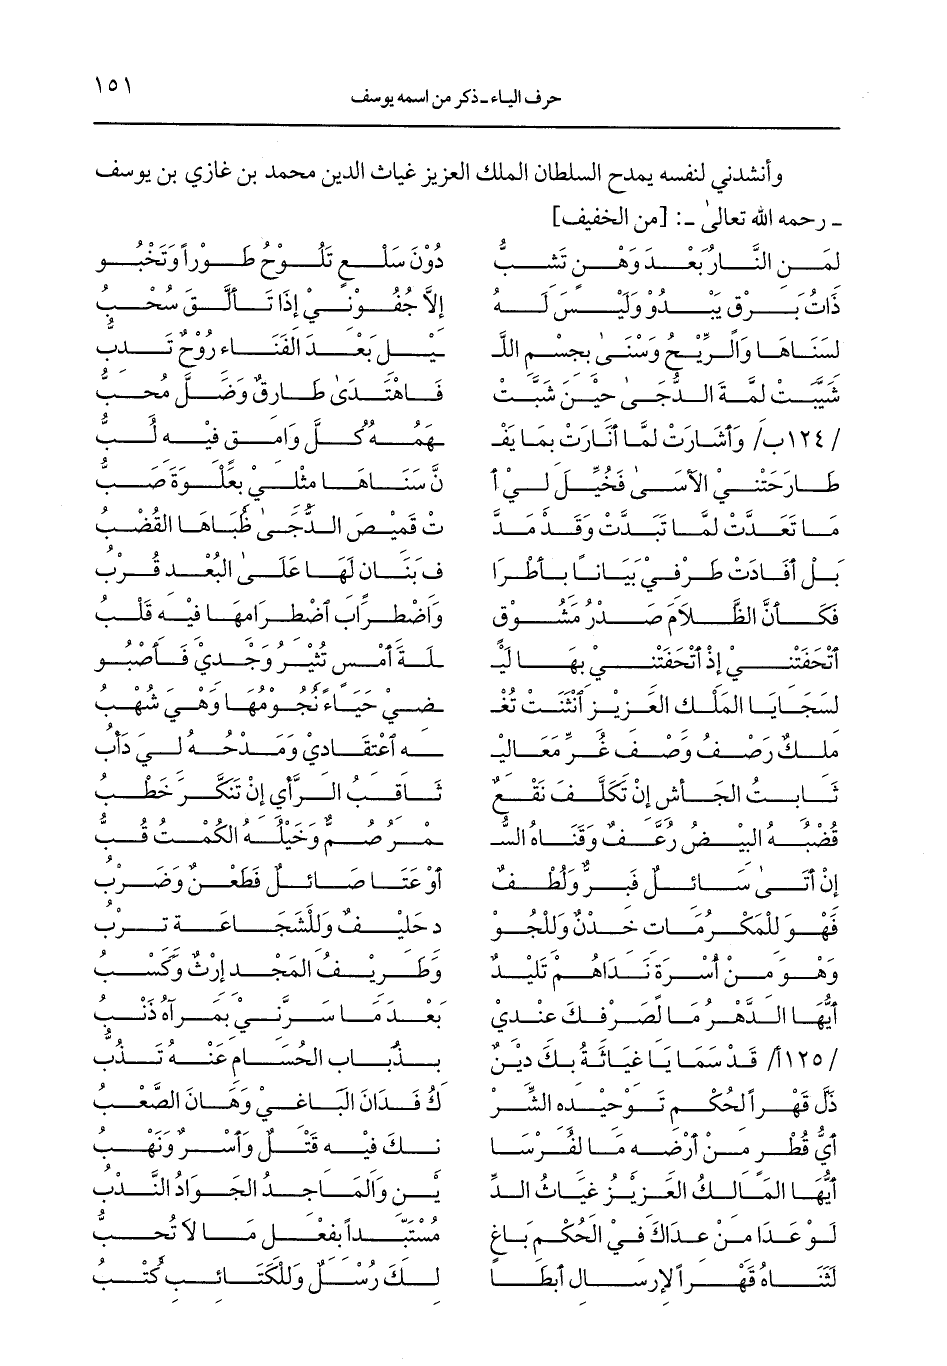 ١٥١
حرف الياء ـ ذكر من اسمه يوسف
وأنشدني لنفسه يمدح السلطان الملك العزيز غياث الدين محمد بن غازي بن يوسف
ـ رحمه الله تعالىٰ ـ: [من الخفيف]
لمَنِ النَّارُ بَعْدَ وَهْنٍ تَشبُّ دُوْنَ سَلْعٍ تَلُوْحُ طَوْراً وَتَخْبُو
ذَاتُ بَرْقٍ يَبْدُو وَلَيْسَ لَهُ إلاَّ جُفُوْنِيْ إذَا تَأَلَّقَ سُحْبُ
لسَنَاهَا وَالرِّيْحِ وَسْنَىٰ بِجِسْمِ اللَّـ ـيْلِ بَعْدَ الفَنَاءِ رُوْحٌ تَدبُّ
شَيَّبَتْ لمَّةَ الدُّجَىٰ حيْنَ شَبَّتْ فَاهْتَدَىٰ طَارقٌ وَضَلَّ مُحبُّ
/١٢٤ب/ وَأشَارَتْ لَمَّا أنَارَتْ بمَا يَفْـ ـهَمُهُ كُلُّ وَامِقٍ فيْهِ لُبُّ
طَارَحَتْنيْ الأسَىٰ فَخُيِّلَ لي أ نَّ سَنَاهَا مثْلي بعَلْوَةَ صَبُّ
مَا تَعَدَّتْ لَمَّا تَبَدَّتْ وَقَدْ مَدَّ تْ قَميْصَ الدُّجَىٰ ظُبَاهَا القُضْبُ
بَلْ أفَادَتْ طَرْفيْ بَيَانًا بِأطْرَا ف بَنَانٍ لَهَا عَلَىٰ البُعْدِ قُرْبُ
فَكَأنَّ الظَّلامَ صَدْرُ مَشُوْقٍ وَاضْطِرَابَ اضْطِرَامِهَا فيْهِ قَلْبُ
أتْحَفَتْنيْ إذْ أتْحَفَتْنيْ بهَا لَيْـ ـلَةَ أمْسٍ تُثيْرُ وَجْديْ فَأصْبُو
لسَجَايَا المَلْكِ العَزيْزِ انْثَنَتْ تُغْـ ـضيْ حَيَاءً نُجُومُهَا وَهْيَ شُهْبُ
مَلكٌ رَصْفُ وَصْفِ غُرِّ مَعَاليْـ ـهِ اعْتقَاديْ وَمَدْحُهُ ليْ دَأبُ
ثَابتُ الجَأشِ إنْ تَكَلَّفَ نَقْعٌ ثَاقبُ الرَّأيِ إنْ تَنَكَّرَ خَطْبُ
قُضْبُهُ البيْضُ رُعَّفٌ وَقَنَاهُ السُّـ ـمْرُ صُمٌّ وَخَيْلُهُ الكُمْتُ قُبُّ
إنْ أتَىٰ سَائلٌ فَبرٌّ وَلُطْفٌ أوْ عَتَا صَائلٌ فَطَعْنٌ وَضَرْبُ
فَهْوَ للْمَكْرُمَاتِ خِدْنٌ وَللْجُو د حَليْفٌ وَللْشَّجَاعَةِ تِرْبُ
وَهْوَ منْ أُسْرَةٍ نَدَاهُمْ تَليْدٌ وَطَريْفُ المَجْدِ إرْثٌ وَكَسْبُ
أيُّهَا الدَّهْرُ مَا لصَرْفكَ عنْديْ بَعْدَ مَا سَرَّنيْ بمَرْآهُ ذَنْبُ
/١٢٥أ/ قَدْ سَمَا يَا غيَاثَهُ بكَ ديْنٌ بذُبَابِ الحُسَامِ عَنْهُ تَذُبُّ
ذَلَّ قَهْراً لحُكْمِ تَوْحيْدهِ الشِّرْ كُ فَدَانَ البَاغيْ وَهَانَ الصَّعْبُ
أيُّ قُطْرٍ منْ أرْضه مَا لفُرْسَا نكَ فيْه قَتْلٌ وَأسْرٌ وَنَهْبُ
أيُّهَا المَالكُ العَزيْزُ غيَاثُ الدِّ يْنِ وَالمَاجدُ الجَوَادُ النَّدْبُ
لَوْ غَدَا منْ عدَاكَ في الحُكْمِ بَاغٍ مُسْتَبدّاً بفعْلِ مَا لاَ تُحبُّ
لَثَنَاهُ قَهْراً لإرْسَالِ أبْطَا لكَ رُسْلٌ وَللْكَتَائبِ كُتْبُ